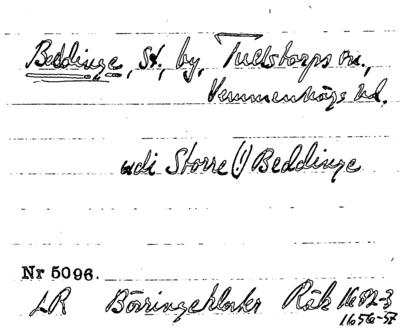 Beddinge, St., by, Tullstorps sn.,
Vemmenhögs hd.
udi Storre (!) Beddinge
Nr 5096.
LR Börringekloster Räk 1682-3
1656-57